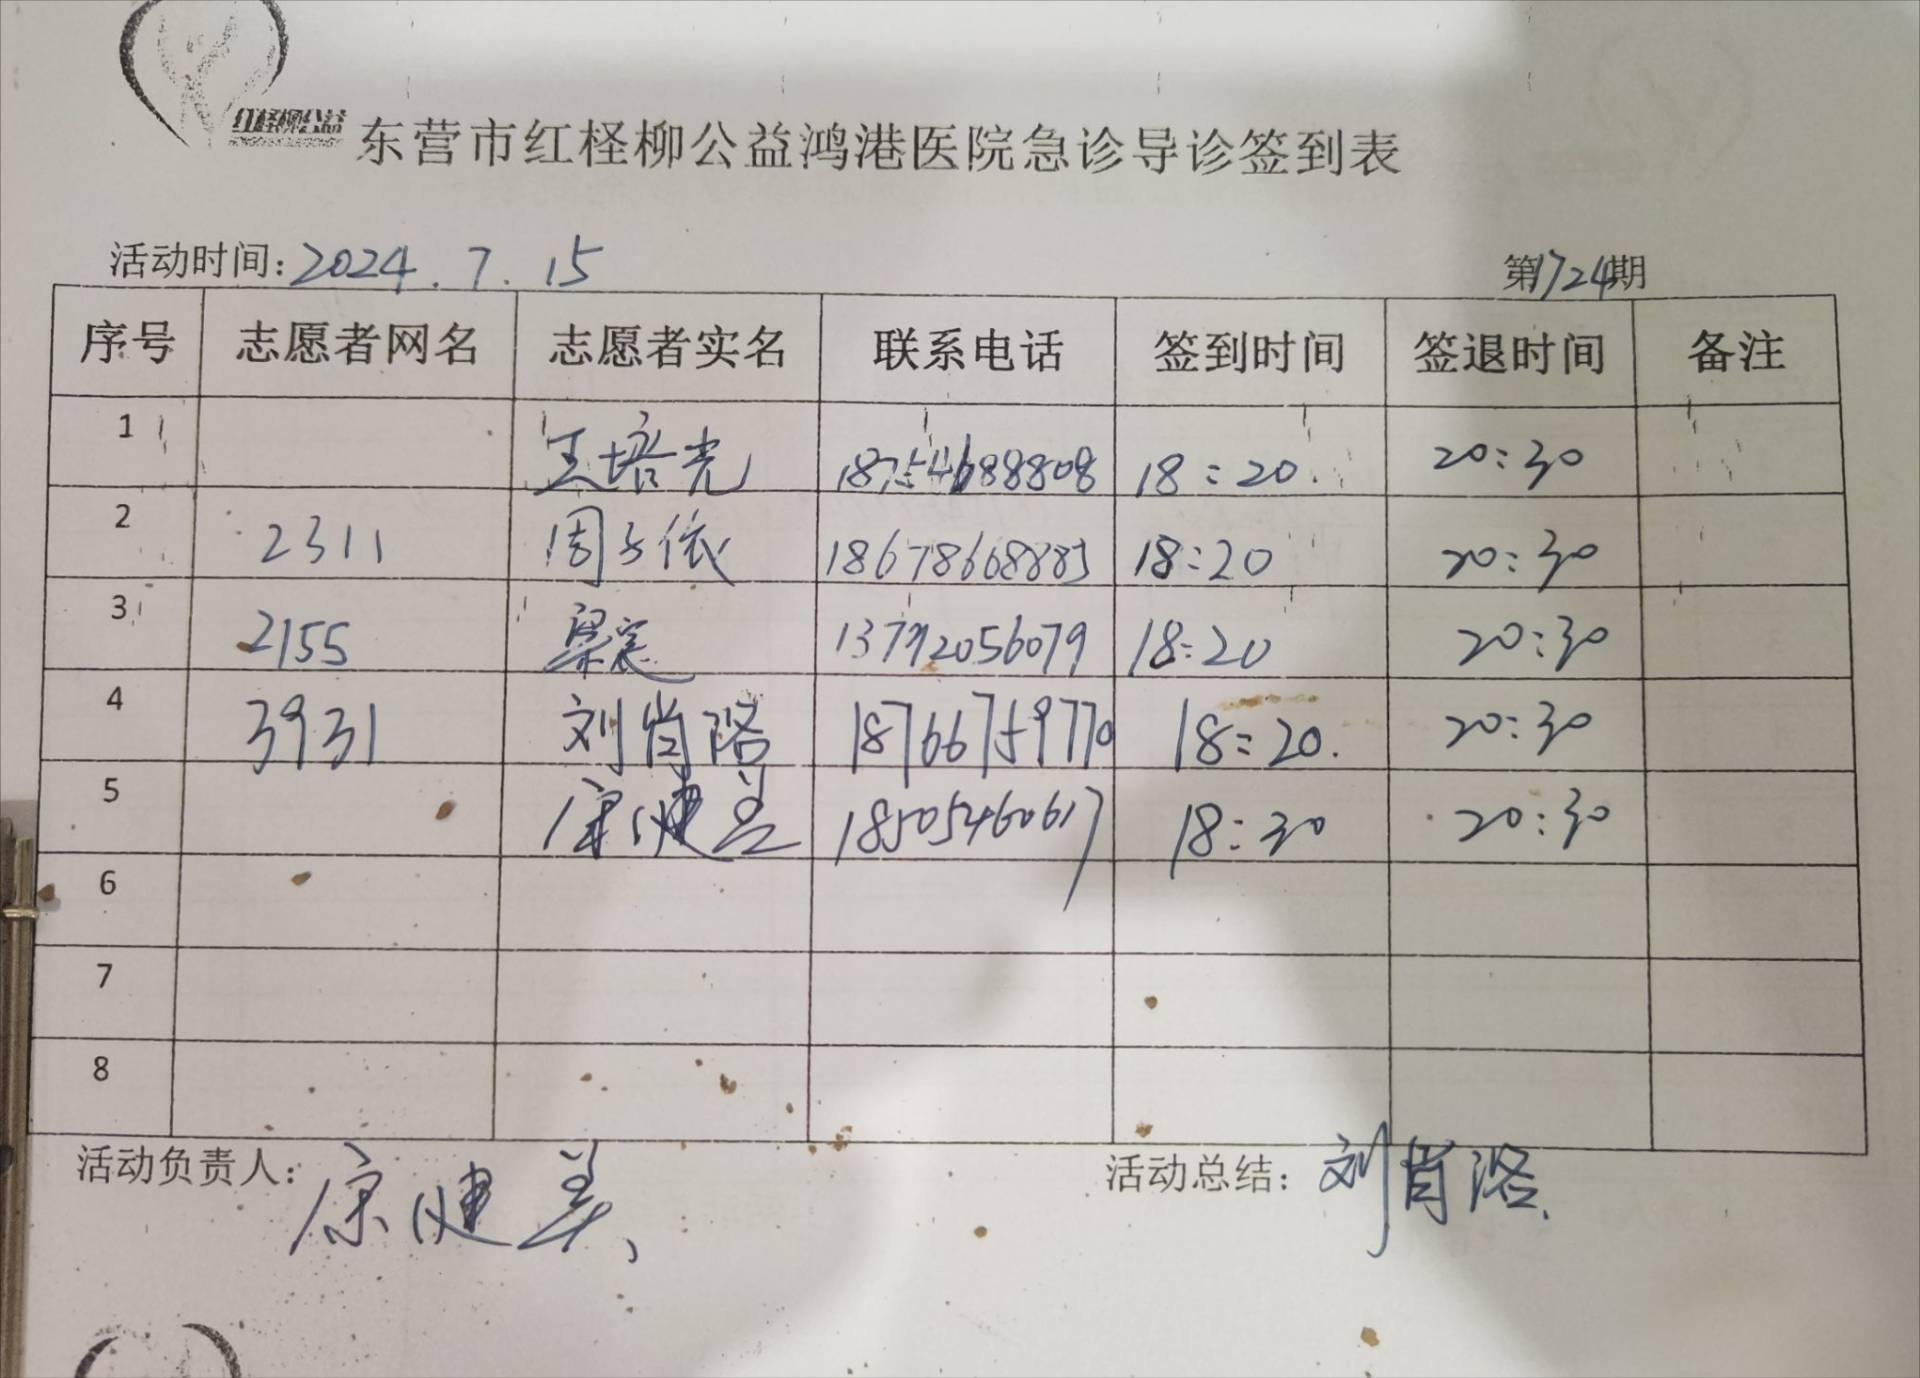 红柽柳公益
东营市红柽柳公益鸿港医院急诊导诊签到表
活动时间:2024.7.15 第1724期
序号 志愿者网名 志愿者实名 联系电话 签到时间 签退时间 备注
1 王培光 18754688808 18:20. 20:30
2 2311 周子依 18678668885 18:20 20:30
3 2155 梁寔 13792056079 18:20 20:30
4 3931 刘肖洛 18766759770 18:20. 20:30
5 康健美 18505460617 18:30 20:30
6
7
8
活动负责人:康健美、 活动总结:刘肖洛、